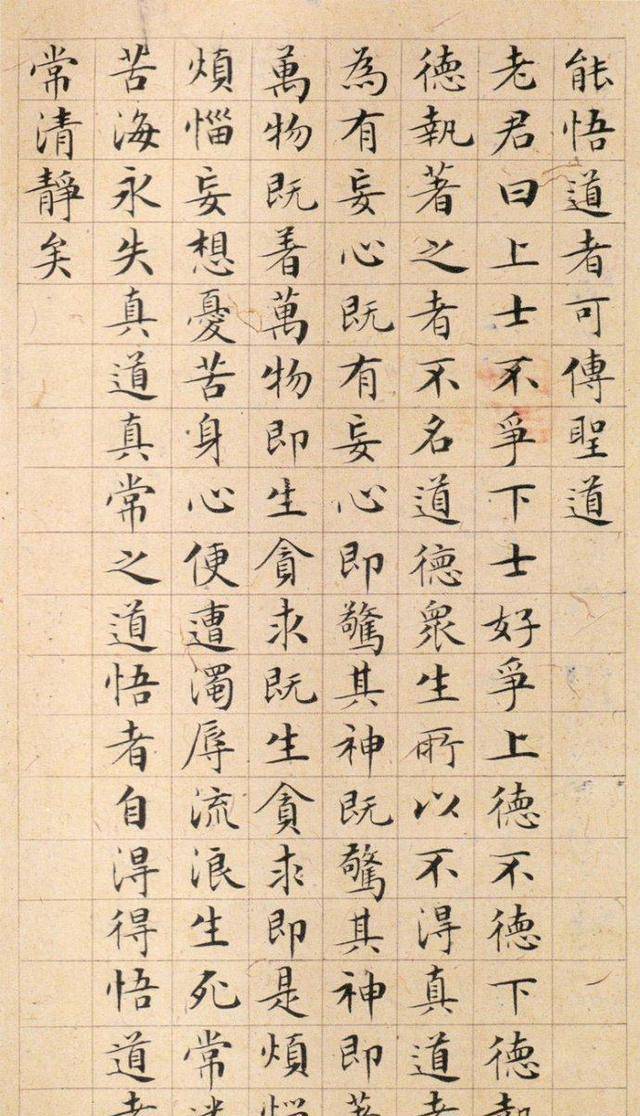 能悟道者可傳聖道
老君曰上士不爭下士好爭上德不德下德執
德執著之者不名道德衆生所以不得真道者
為有妄心既有妄心即驚其神既驚其神即著
萬物既着萬物即生貪求既生貪求即是煩惱
煩惱妄想憂苦身心便遭濁辱流浪生死常
苦海永失真道真常之道悟者自得得悟道者
常清靜矣